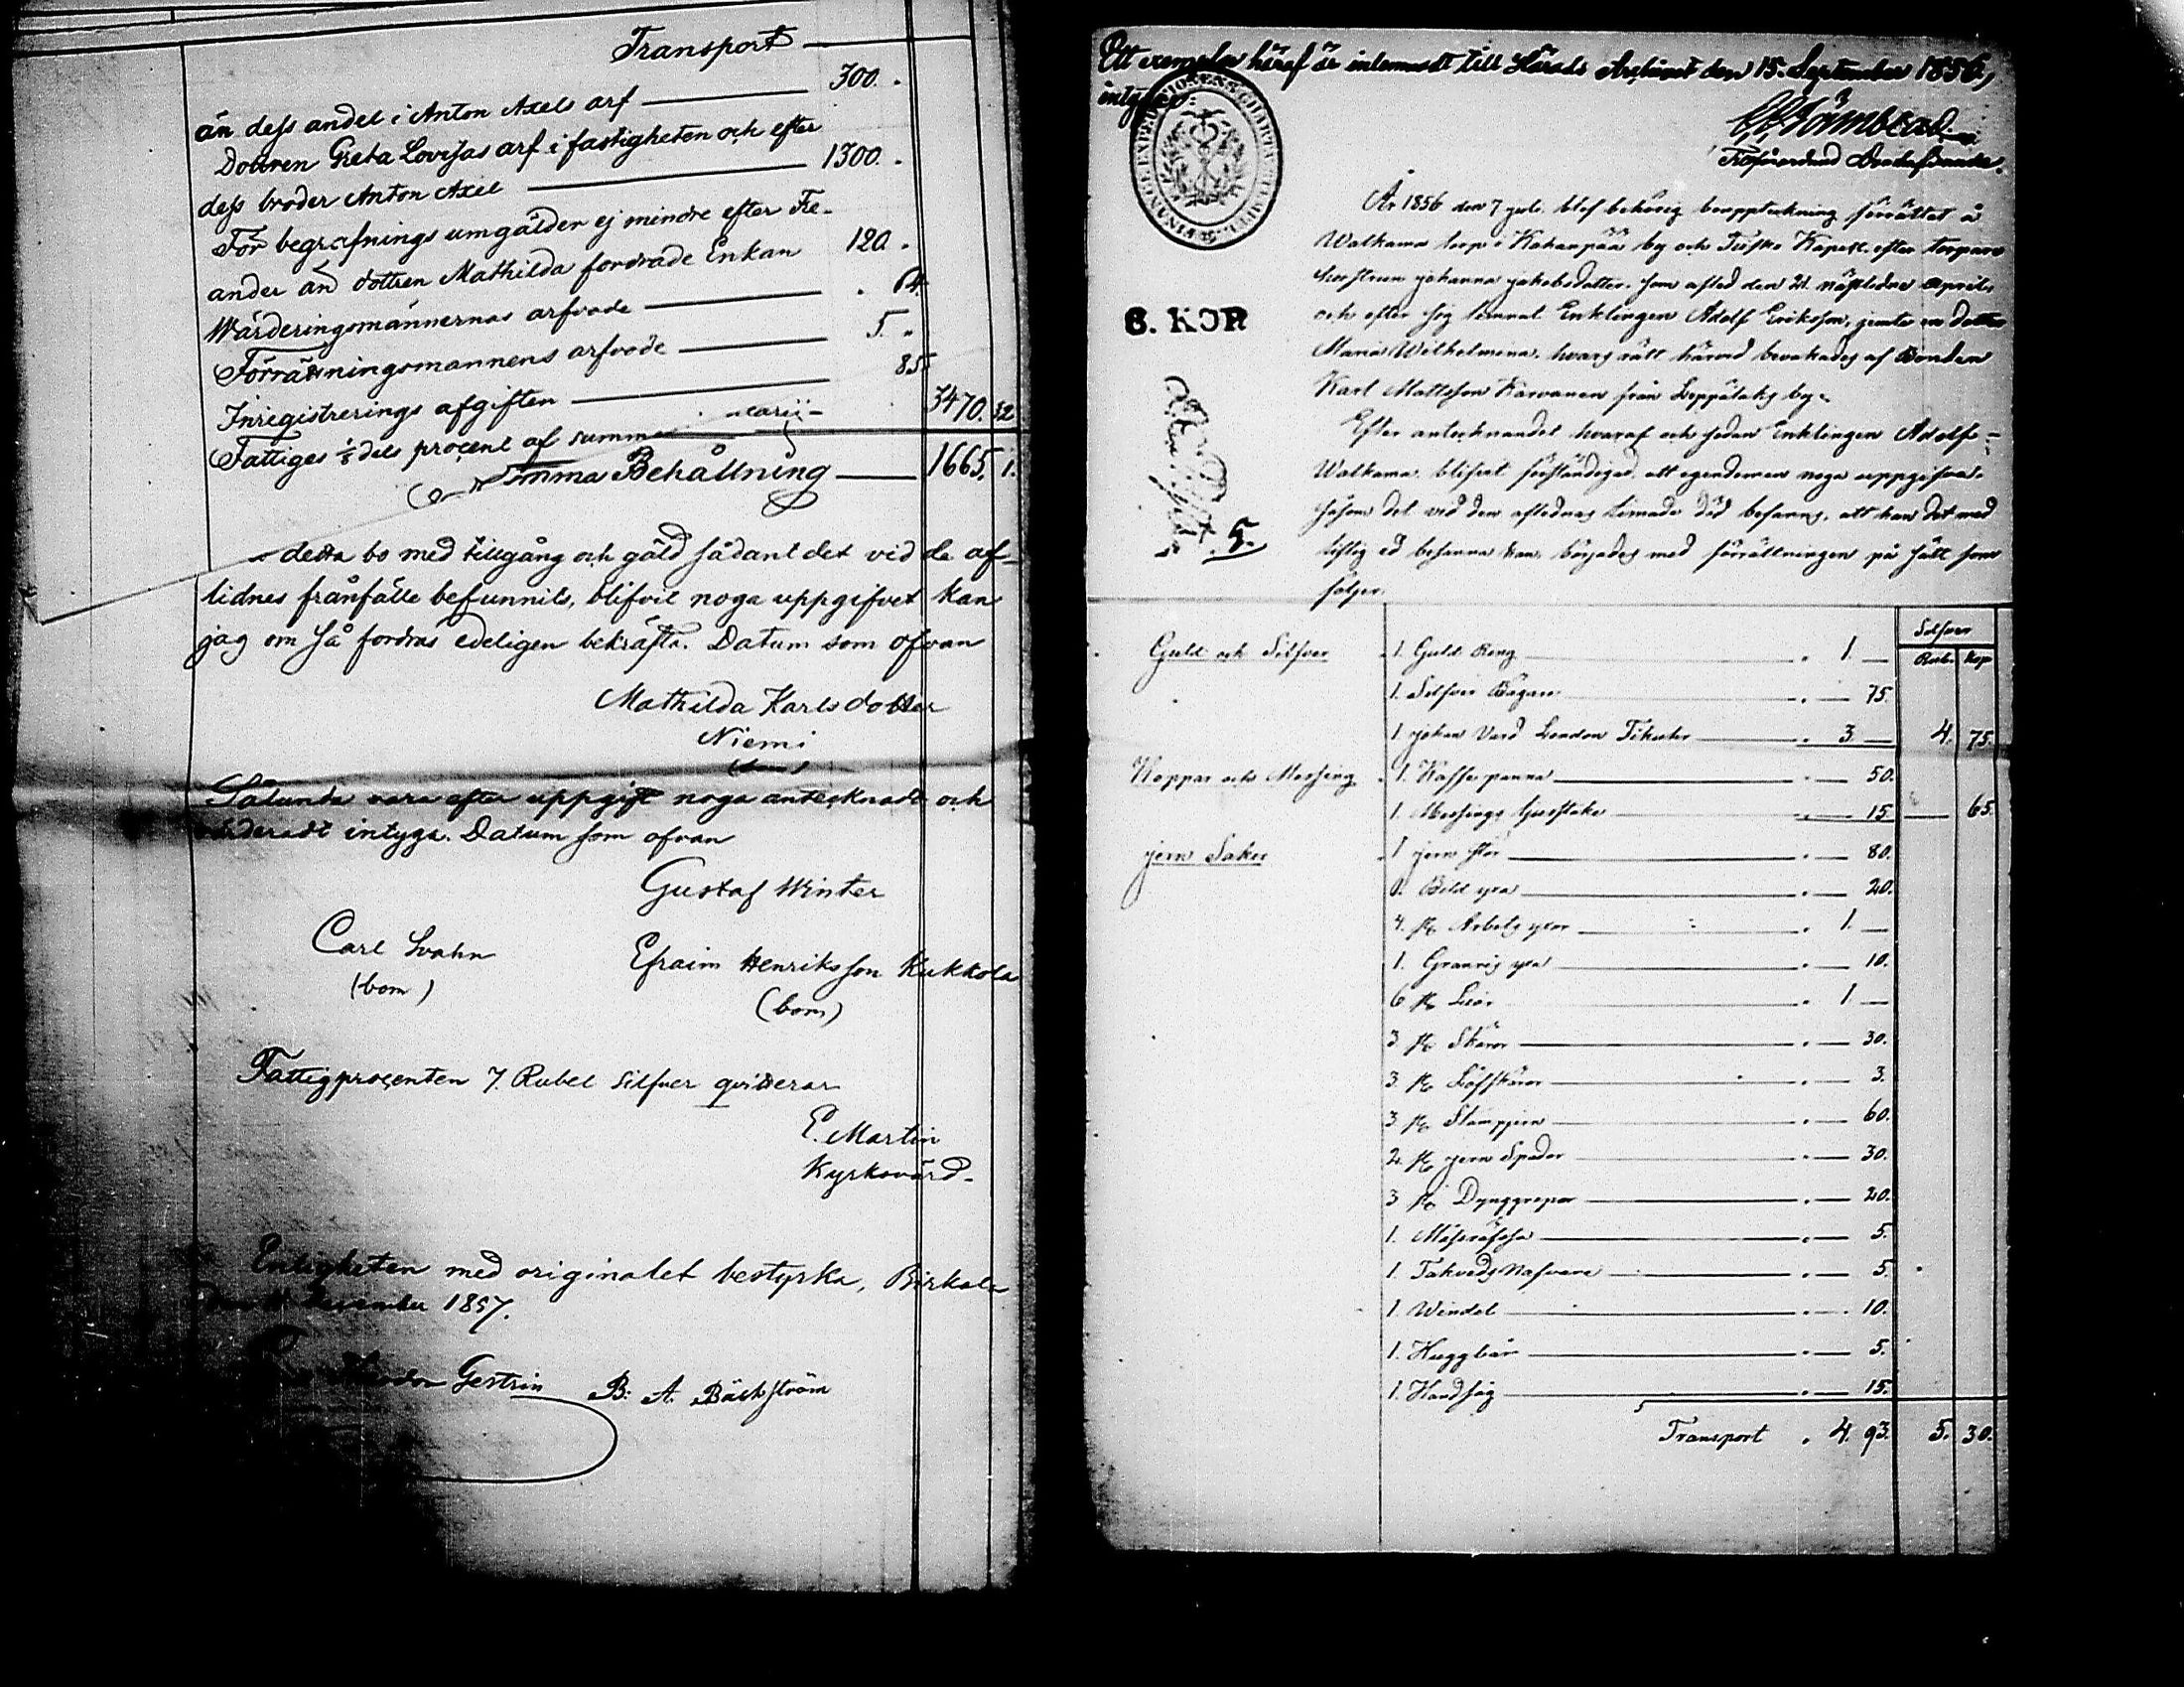 Transport
än dess andel i Anton Axels arf 300. -
Dottren Greta Lovisas arf i fastigheten och efter
dess broder Anton Axel 1300. -
För begrafnings umgälder ej mindre efter Fre-
ander än dottren Mathilda fordrade Enkan 120. -
Wärderingsmännernas arfvode . 64.
Förrättningsmannens arfvode 5. "
Inregistrerings afgiften 85
Fattiges 1/8 dels procent af summa 3470. 32
Summa Behållning 1665. 1.
detta bo med tillgång och gäld sådant det vid de af-
lidnes frånfälle befunnits, blifvit noga uppgifvet kan
jag om så fordras edeligen bekräfta. Datum som ofvan
Mathilda Karlsdotter
Niemi
Sålunda vara efter uppgift noga antecknadt och
värderadt intyga. Datum som ofvan
Gustaf Winter
Carl Svahn
(bom)
Efraim Henriksson Kukkola
(bom)
Fattigprocenten 7. Rubel Silfver qvitterar
E. Martin
Kyrkovärd.
Enligheten med originalet bestyrka, Birkala
December 1857.
Gestrin B: A. Bäckström
Ett exemplar häraf är inlemnadt till Härads Archivet den 15. September 1856,
intygar:
FINANCE EXPEDITIONENS CHARTÆ STÄMPEL
6. KOP
5.
År 1856 den 7 juli, blef behörig bouppteckning förrättat å
Walkama torp i Kahanpää by och Kapell, efter torpare
hustrun Johanna Jakobsdotter, som afled den 21 näστledne April,
och efter sig lemnat Enklingen Adolf Eriksson, jemte en dotter
Maria Wilhelmina, hvars rätt härvid bevakades af Bonden
Karl Mattsson Karvanen från Leppälaks by.
Efter antecknandet hvaraf och sedan Enklingen Adolf
Walkama, blifvit förständigad, att egendomen noga uppgifva,
såsom det vid den aflednas timade död befanns, att han det med
liflig ed besanna kan, börjades med förrättningen på sätt som
följer.
Silfver
Rub. Kop
Guld och Silfver 1. Guld Ring 1. —
1. Silfver Bägare 75.
1. 3. — 4. 75.
Koppar och Messing 1. Kaffe panna 50.
1. Messings ljusstake 15. 65.
Jern Saker 1 Jern stör 80.
20.
4. st. Arbets yxor 1. —
1. yxa 10.
6 st. Liar 1. —
3. st. Skäror 30.
3. st. Löfskäror 3.
3. st. Stämjern 60.
2. st. Jern Spador 30.
3 st. Dynggrepar 20.
1. 5.
1. Takveds Nafvare 5.
1. Windel 10.
1. Huggbår 5.
1. Handsåg 15.
Transport 4. 93. 5. 30.